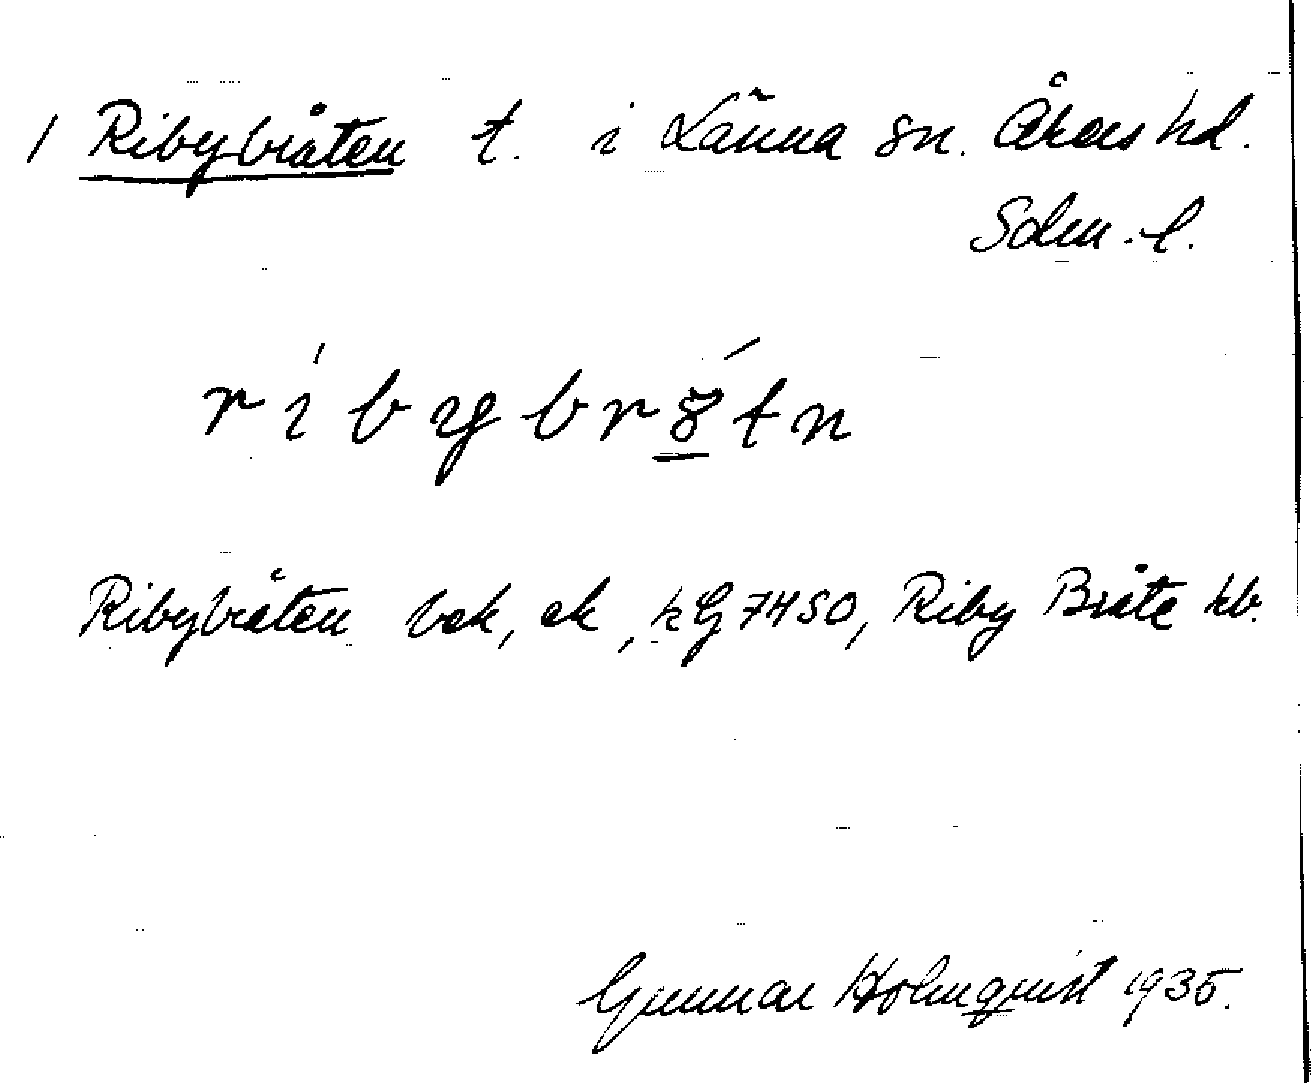 1 Ribybråten t. i Länna sn. Åkers hd.
Södm. l.
Ribybråten bek, ek, hG 7450, Riby Bråte kb.
Gunnar Holmquist 1935.